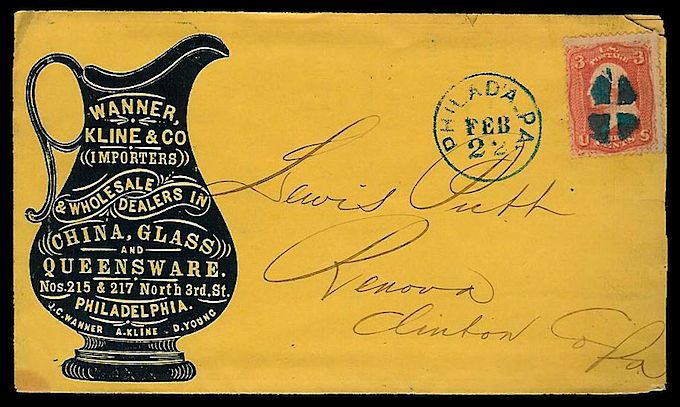 WANNER,
KLINE & CO
((IMPORTERS))
& WHOLESALE
DEALERS IN
CHINA, GLASS
AND
QUEENSWARE.
Nos. 215 & 217 North 3rd. St.
PHILADELPHIA.
J.C. WANNER A. KLINE D. YOUNG
PHILADA. PA
FEB
22
3 U.S. 3
POSTAGE
U S
Lewis Putt
Renova
Clinton Co Pa